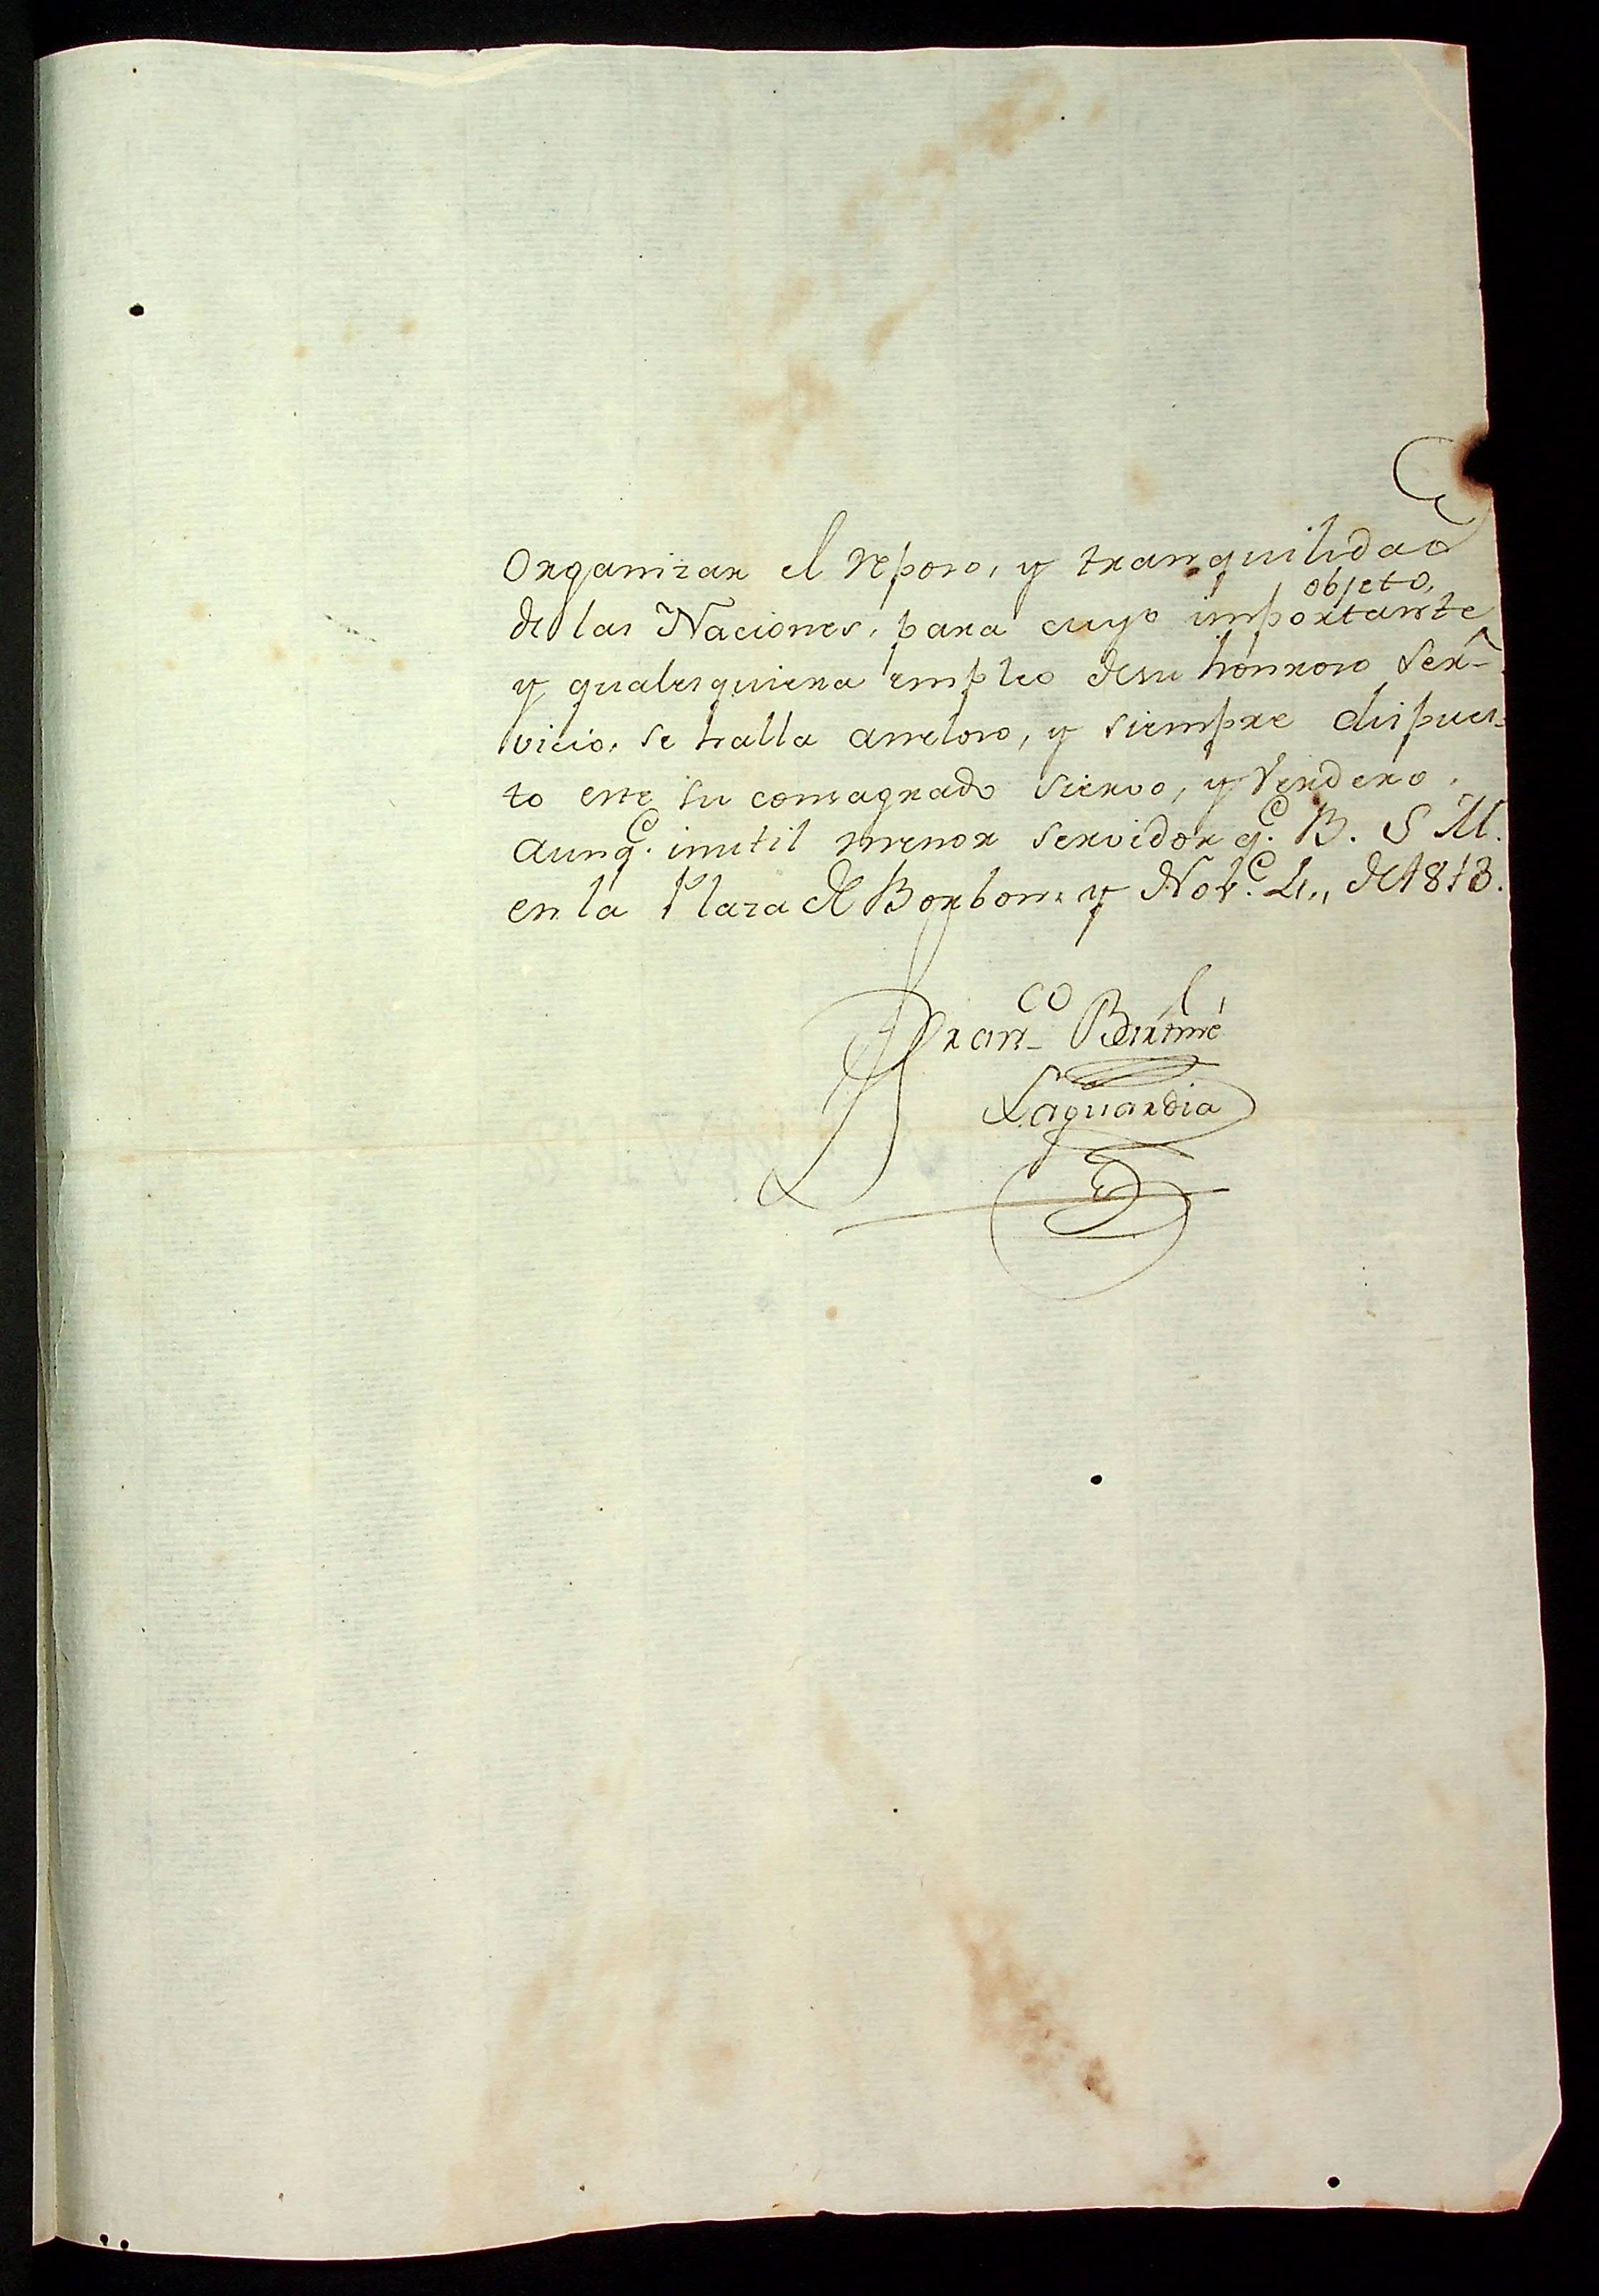 Organizar el reposo, y tranquilidad
objeto,
de las Naciones, para cuyo importante
y qualesquiera empleo desu honrroso Ser-
vicio, se halla anseloso, y siempre dispues-
to este su consagrado siervo, y Verdero.
aunq.e inutil menor servidor q.e B. S M.
en la Plaza de Borbon. y Nov.e 4., de 1813.
Fran.co Bartmé
Laguardia